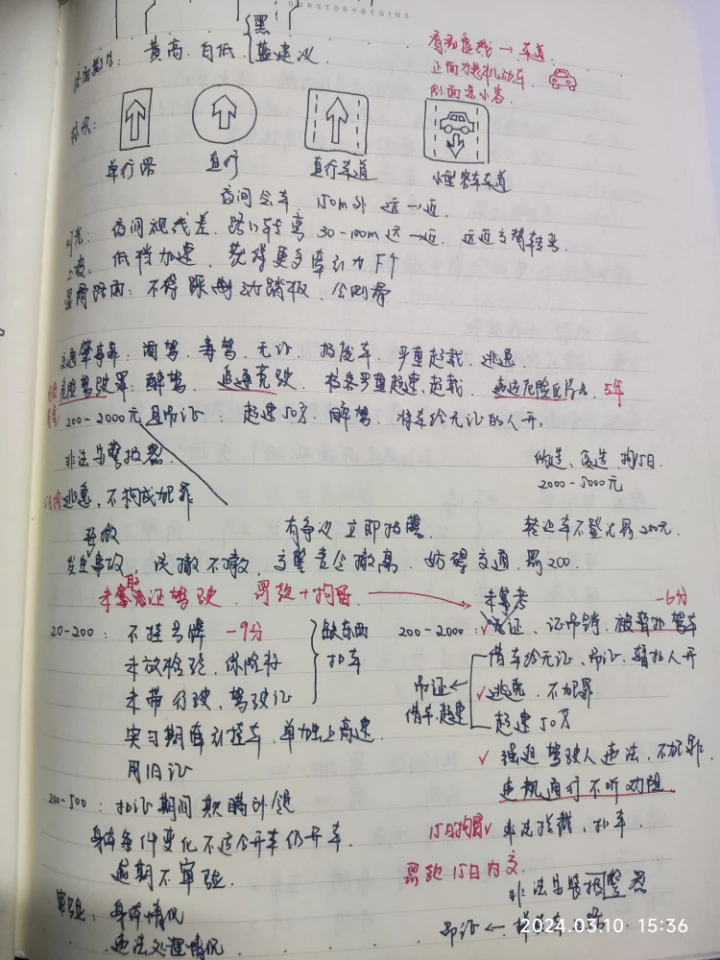 OURSTORYBEGINS
黄高 白低 黑
蓝建议
有动虚线 → 车道
正面为机动车
侧面是小客
单行路 直行 直行车道 小型客车车道
夜间会车 150m外 远→近
灯光: 夜间视线差. 路口车距离 30-100m 远→近. 远近交替转弯
低档加速 获得更多牵引力
湿滑路面: 不得踩制动踏板. 会侧滑
交通肇事罪: 酒驾. 毒驾. 无证 报废车. 严重超载. 逃逸
危险驾驶罪: 醉驾. 追逐竞驶 校客严重超速、超载 5年
200-2000元 且吊证: 超速50%. 醉驾. 将车给无证的人开.
非法安警报器 伪造、变造, 拘15日
2000-5000元
逃逸, 不构成犯罪
有争议 立即报警
发生事故, 应撤不撤, 交警责令撤离. 妨碍交通. 罚200.
未取证驾驶 罚款+拘留 未驾考 -6分
20-200: 不挂号牌 -9分 缺东西 扣车
未放检验、保险标
未带行驶、驾驶证
实习期牵引挂车, 单独上高速
用旧证
200-2000: ✓无证、证吊销, 被暂扣驾车
借车给无证、吊证、暂扣人开
✓逃逸 不犯罪
超速50%
吊证 ←
借车.超速
✓ 强迫驾驶人违法, 不犯罪.
违规通行不听劝阻
200-500: 扣证期间欺瞒补领
身体条件变化不适合开车仍开车
逾期不审验
15日拘留✓ 非法拦截、扣车
罚款15日内交
非法安装报警器
审验: 身体情况
违法处理情况
吊证 ←
2024.03.10 15:36